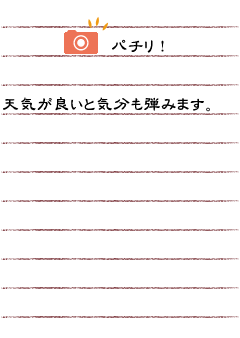 パチリ！
天気が良いと気分も弾みます。